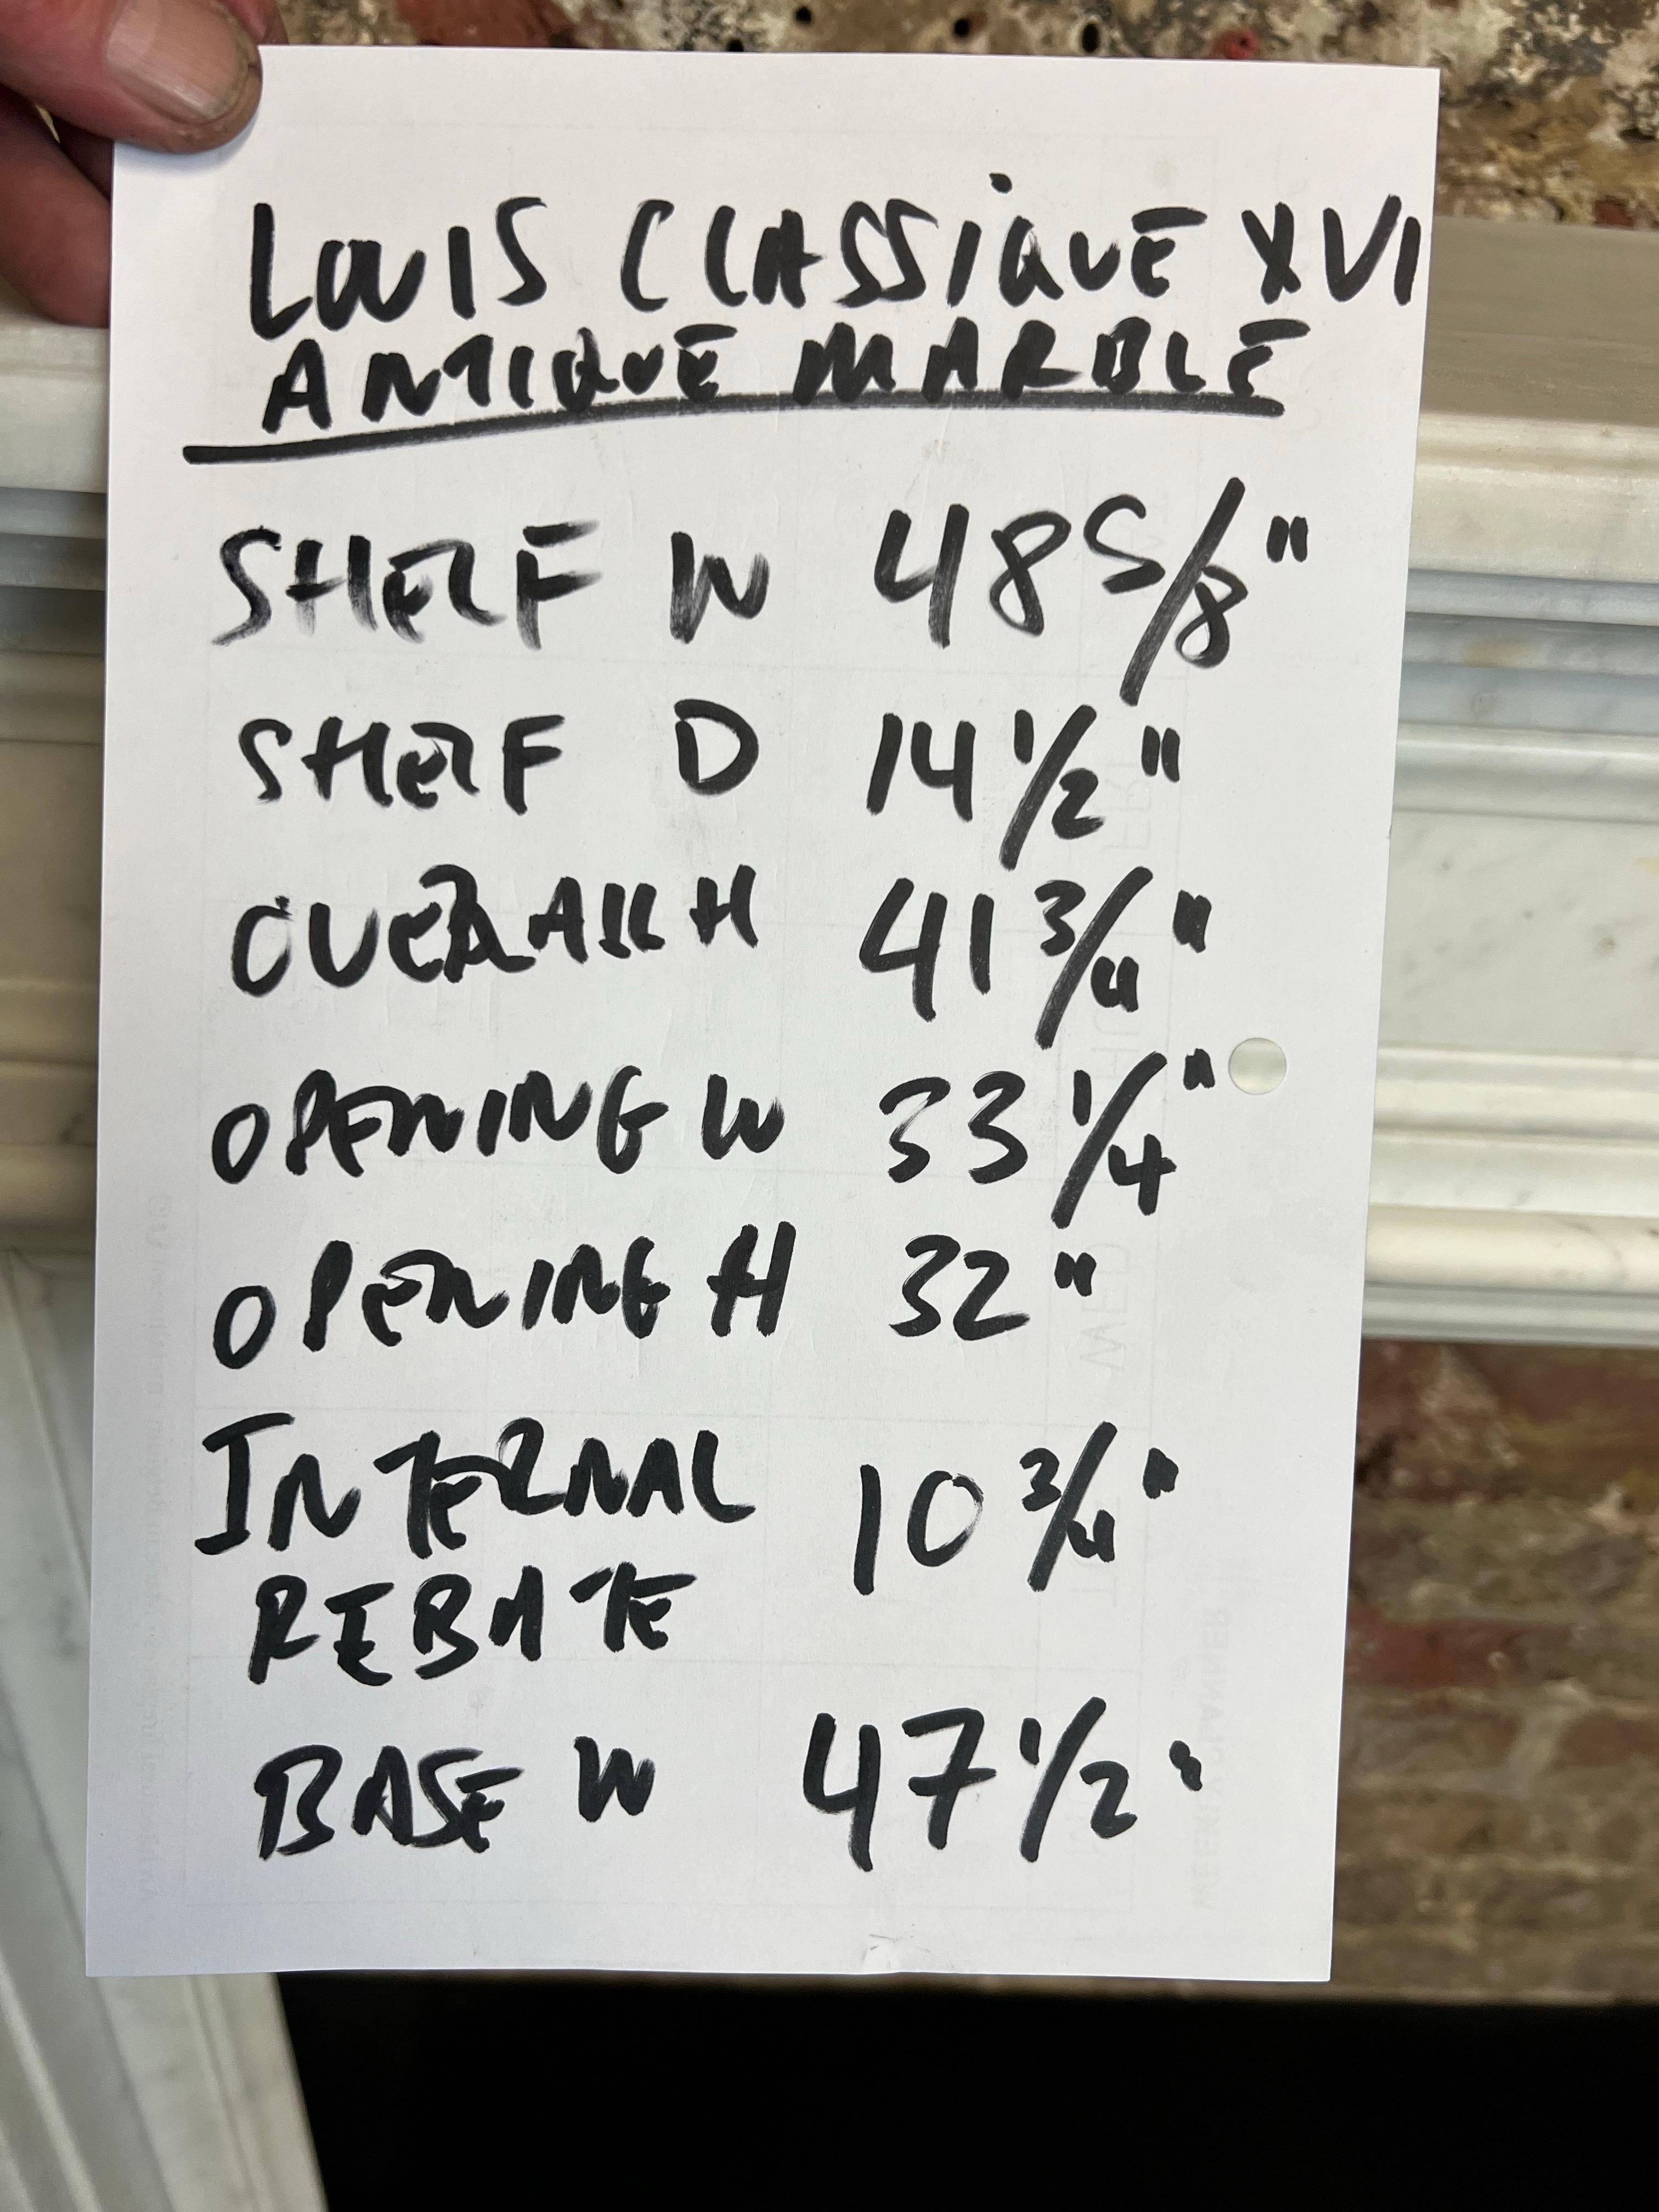 LOUIS CLASSIQUE XVI
ANTIQUE MARBLE
SHELF W 48 5/8"
SHELF D 14 1/2"
OVERALL H 41 3/4"
OPENING W 33 1/4"
OPENING H 32"
INTERNAL 10 3/4"
REBATE
BASE W 47 1/2"